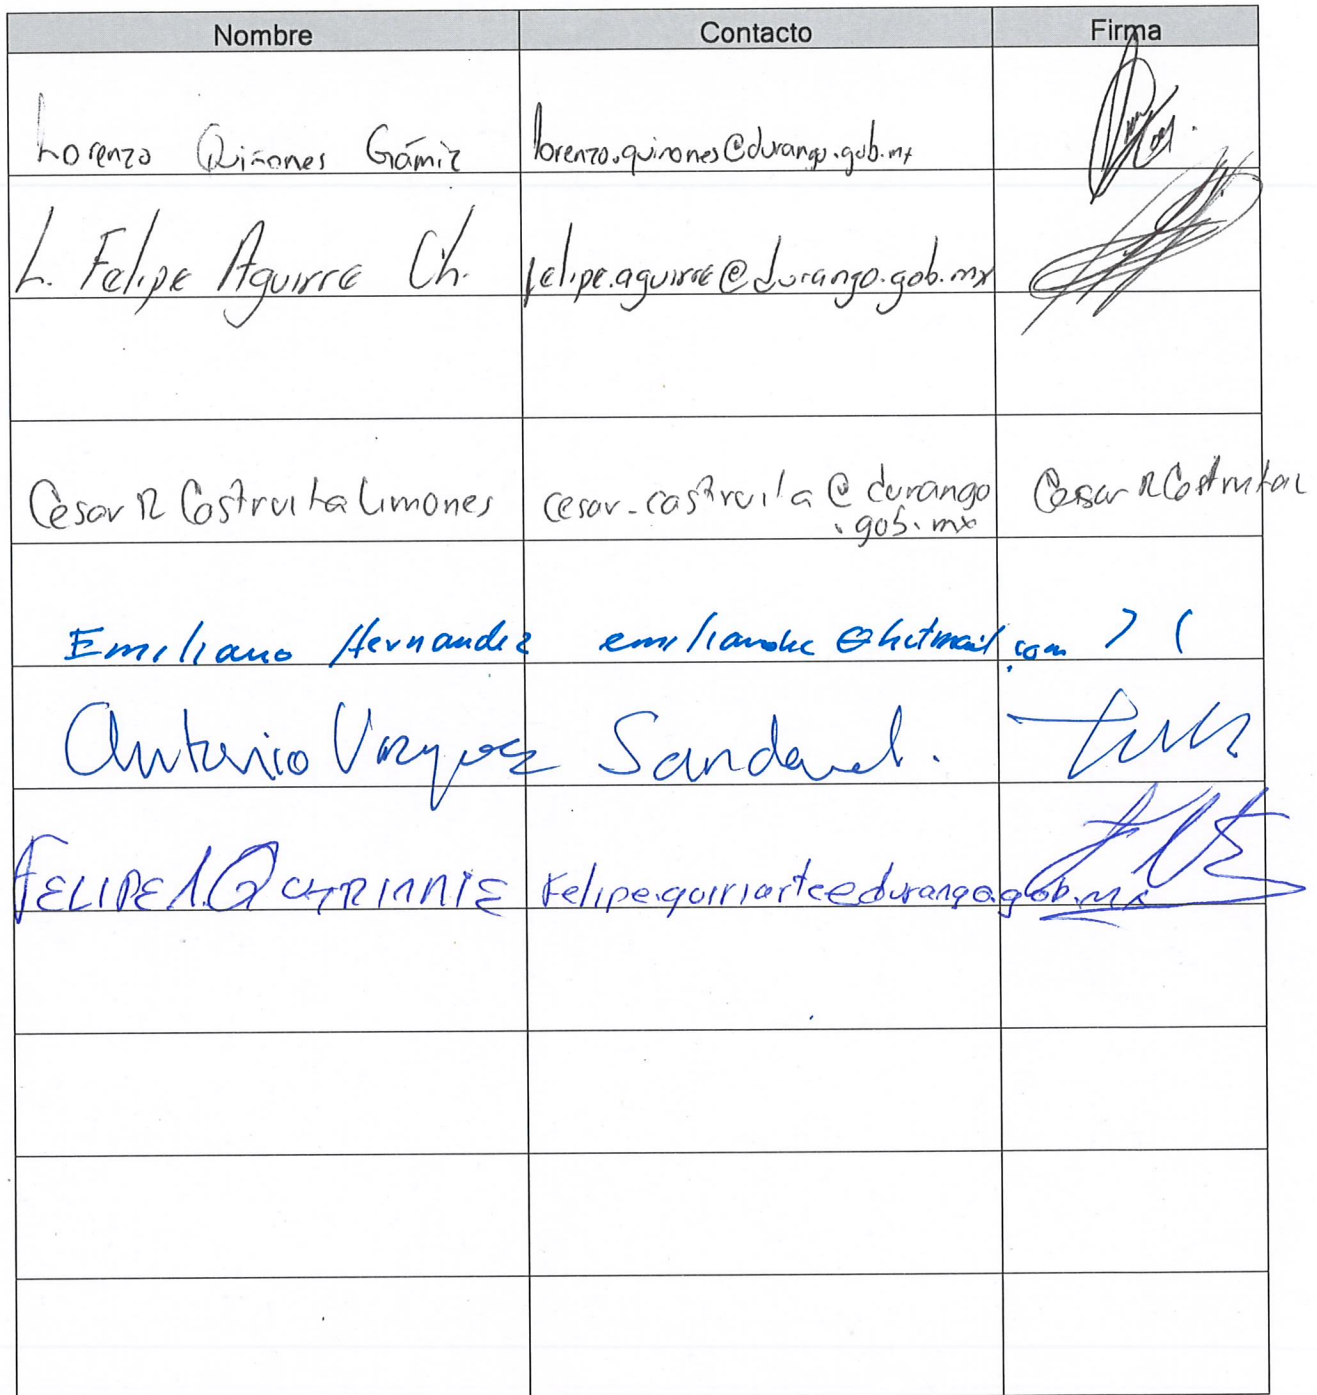 Nombre Contacto Firma
Lorenzo Quiñones Gámiz lorenzo.quinones@durango.gob.mx
L. Felipe Aguirre Ch. felipe.aguirre@durango.gob.mx
Cesar R Castruita Limones cesar_castruita@durango Cesar R Castruita
.gob.mx
Emiliano Hernandez emilianohc@hotmail.com
Antonio Vazquez Sandoval.
FELIPE